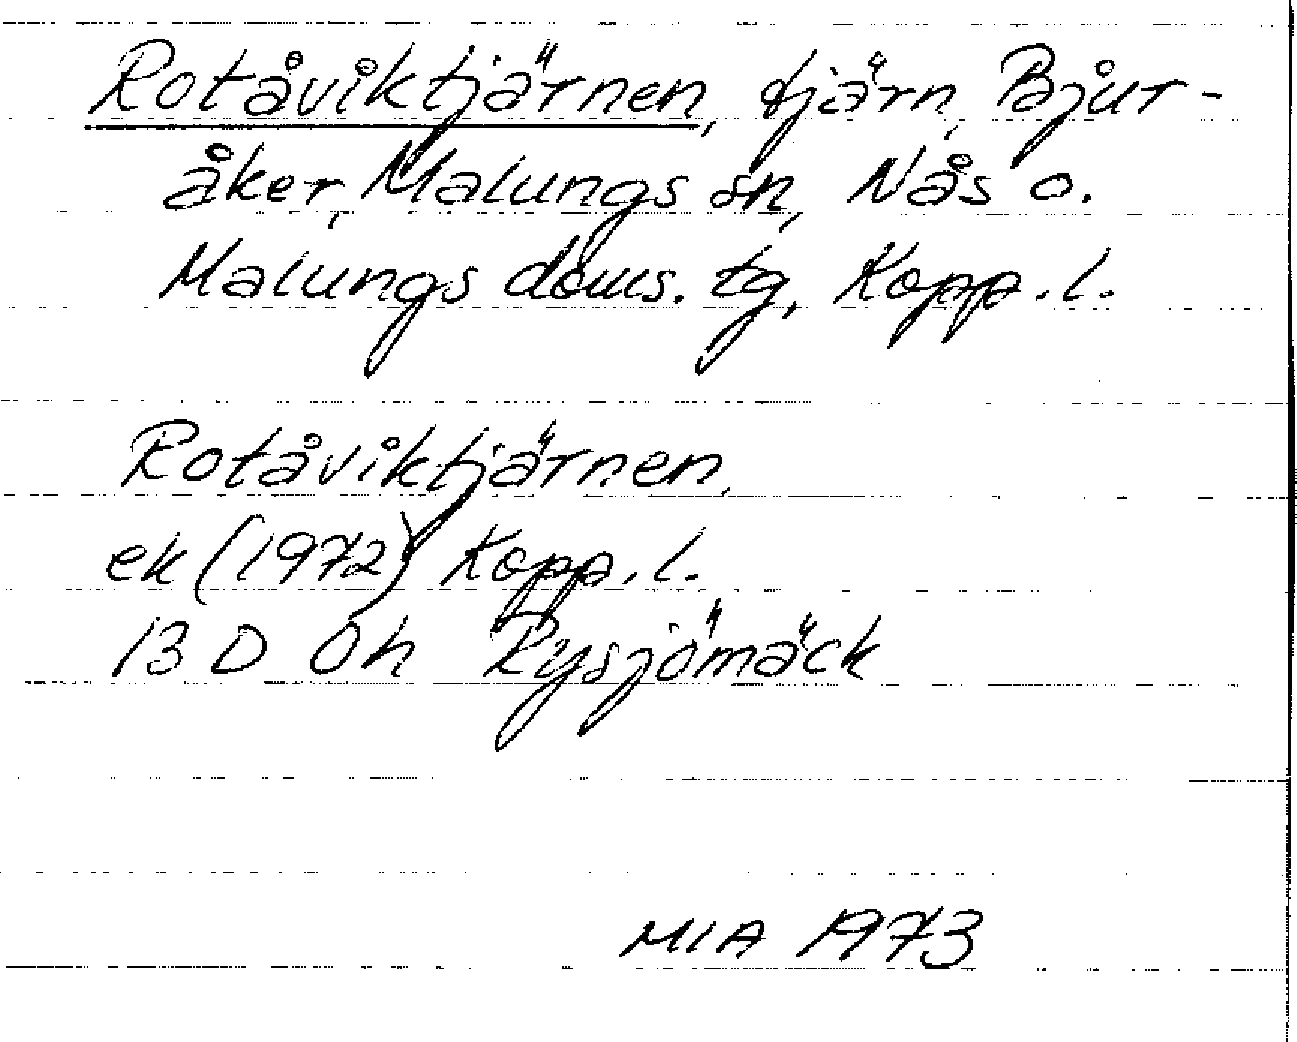 Rotåviktjärnen, tjärn, Bjur-
åker, Malungs sn, Nås o.
Malungs doms. tg, Kopp. l.
Rotåviktjärnen,
ek (1972) Kopp. l.
13 D 0h Rysjömäck
MIA 1973